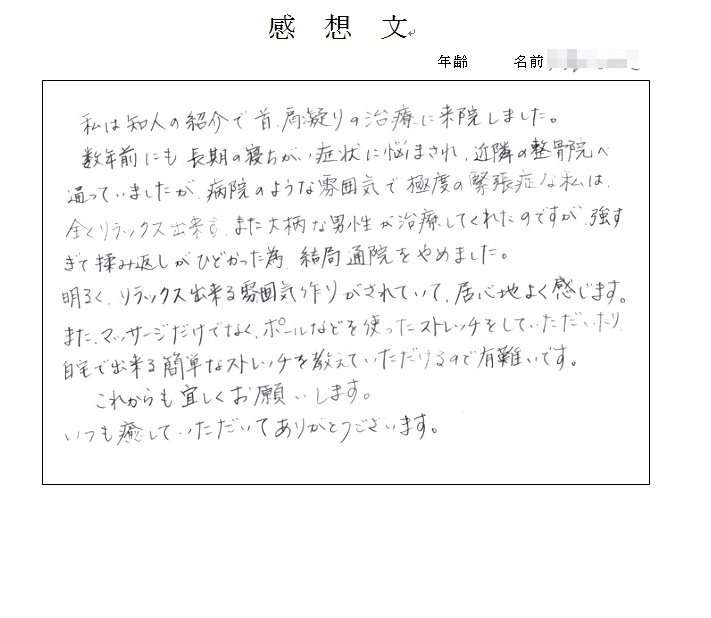 感想文
年齢 名前
私は知人の紹介で首、肩凝りの治療に来院しました。
数年前にも長期の寝ちがい症状に悩まされ、近隣の整骨院へ
通っていましたが、病院のような雰囲気で極度の緊張症な私は、
全くリラックス出来ず、また大柄な男性が治療してくれたのですが、強す
ぎて揉み返しがひどかった為、結局通院をやめました。
明るく、リラックス出来る雰囲気作りがされていて、居心地よく感じます。
また、マッサージだけでなく、ポールなどを使ったストレッチをしていただいたり、
自宅で出来る簡単なストレッチを教えていただけるので有難いです。
これからも宜しくお願いします。
いつも癒していただいてありがとうございます。